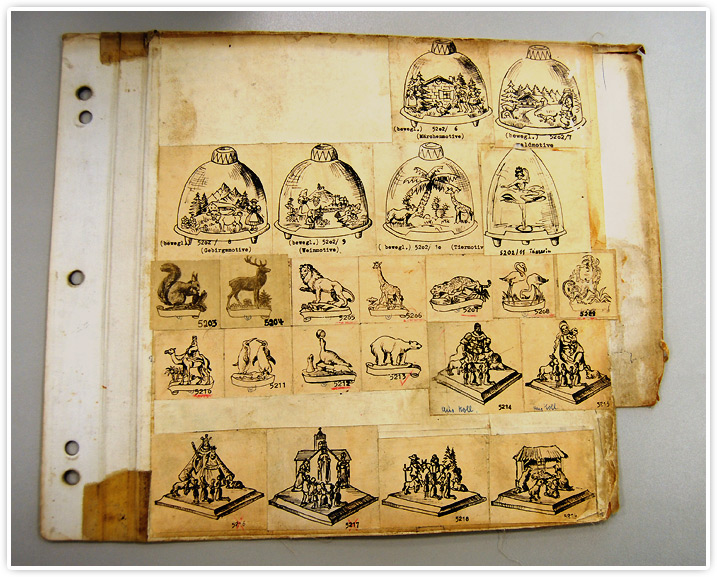 (bewegl.) 52o2/ 6
(Märchenmotive)
(bewegl.) 52o2/7
aldmotive
(bewegl.) 52o2 / 8
(Gebirgsmotive)
(bewegl.) 52o2/ 9
(Weinmotive)
( bewegl.) 52o2/ 1o
(Tiermotiv
5202/11
5203
5204
5205
5206
5207
5208
5209
5210
5211
5212
5213
5214
5215
5216
5217
5218